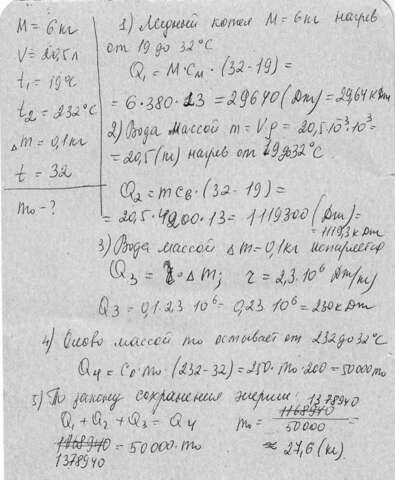 M = 6 кг
V = 20,5 л
t₁ = 19°C
t₂ = 232°C
Δm = 0,1 кг
t = 32
m₀ - ?
1) Медный котел M = 6 кг нагрев
от 19 до 32°C
Q₁ = M · Cм · (32-19) =
= 6 · 380 · 13 = 29640 (Дж) = 29,64 кДж
2) Вода массой m = Vρ = 20,5 · 10⁻³ · 10³ =
= 20,5 (кг) нагрев от 19 до 32°C.
Q₂ = m Cв · (32-19) =
= 20,5 · 4200 · 13 = 1119300 (Дж) =
= 1119,3 кДж
3) Вода массой Δm = 0,1 кг испаряется
Q₃ = r · Δm; r = 2,3 · 10⁶ Дж/кг
Q₃ = 0,1 · 2,3 · 10⁶ = 0,23 · 10⁶ = 230 кДж
4) Олово массой m₀ остывает от 232 до 32°C
Q₄ = C₀ · m₀ · (232-32) = 250 · m₀ · 200 = 50000 m₀
5) По закону сохранения энергии:
Q₁ + Q₂ + Q₃ = Q₄
1168940 = 50000 · m₀
1378940
m₀ = 1378940
1168940
50000
≈ 27,6 (кг)